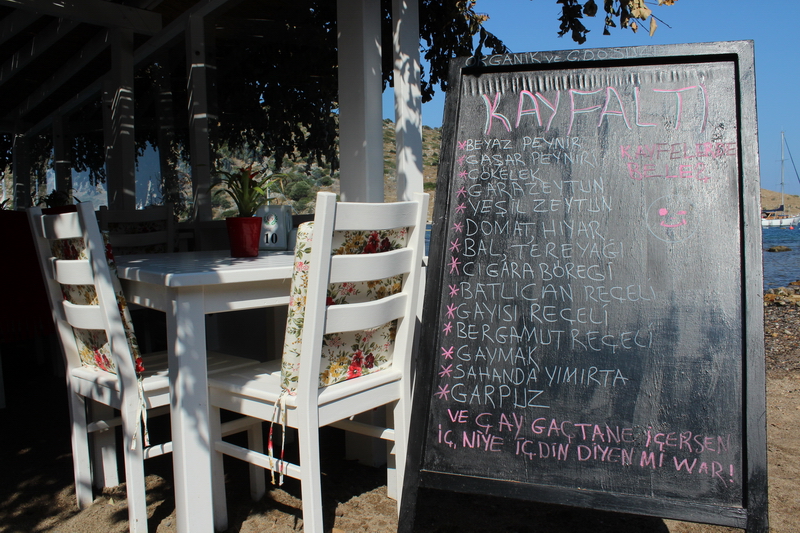 KAYFALTI
BEYAZ PEYNİR
GAŞAR PEYNİRİ
ÇÖKELEK
GARA ZEYTUN
YEŞİL ZEYTUN
DOMAT HIYAR
BAL, TERE YAĞ
CIGARA BÖREGİ
BATLICAN REÇELİ
GAYISI REÇELİ
BERGAMUT REÇELİ
GAYMAK
SAHANDA YIMIRTA
GARPUZ
VE ÇAY GAÇTANE İÇERSEN
İÇ, NİYE İÇDİN DİYEN Mİ WAR!
10